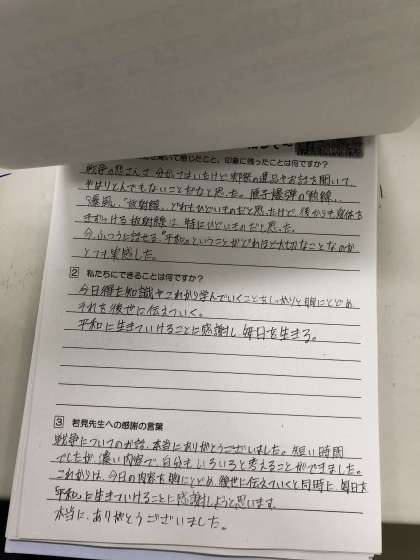 を聞いて感じたこと、印象に残ったことは何ですか?
戦争の悲さんさは分かってはいたけど実際の遺品やお話を聞いて、
やはりとんでもないことだなと思った。原子爆弾の「熱線」、
「爆風」、「放射線」、どれもひどいものだと思ったけど、後からも身体を
きずつける放射線は特にひどいものだと思った。
今、ふつうに話せる"平和"ということがどれほど大切なことなのか、
とても実感した。
2 私たちにできることは何ですか?
今日得た知識やこれから学んでいくことをしっかりと胸にとどめ
それを後世に伝えていく。
平和に生きていけることに感謝し毎日を生きる。
3 若見先生への感謝の言葉
戦争についてのお話、本当にありがとうございました。短い時間
でしたが、濃い内容で自分もいろいろと考えることができました。
これからは、今日の内容を胸にとどめ、後世に伝えていくと同時に、毎日を
平和に生きていけることに感謝しようと思います。
本当に、ありがとうございました。